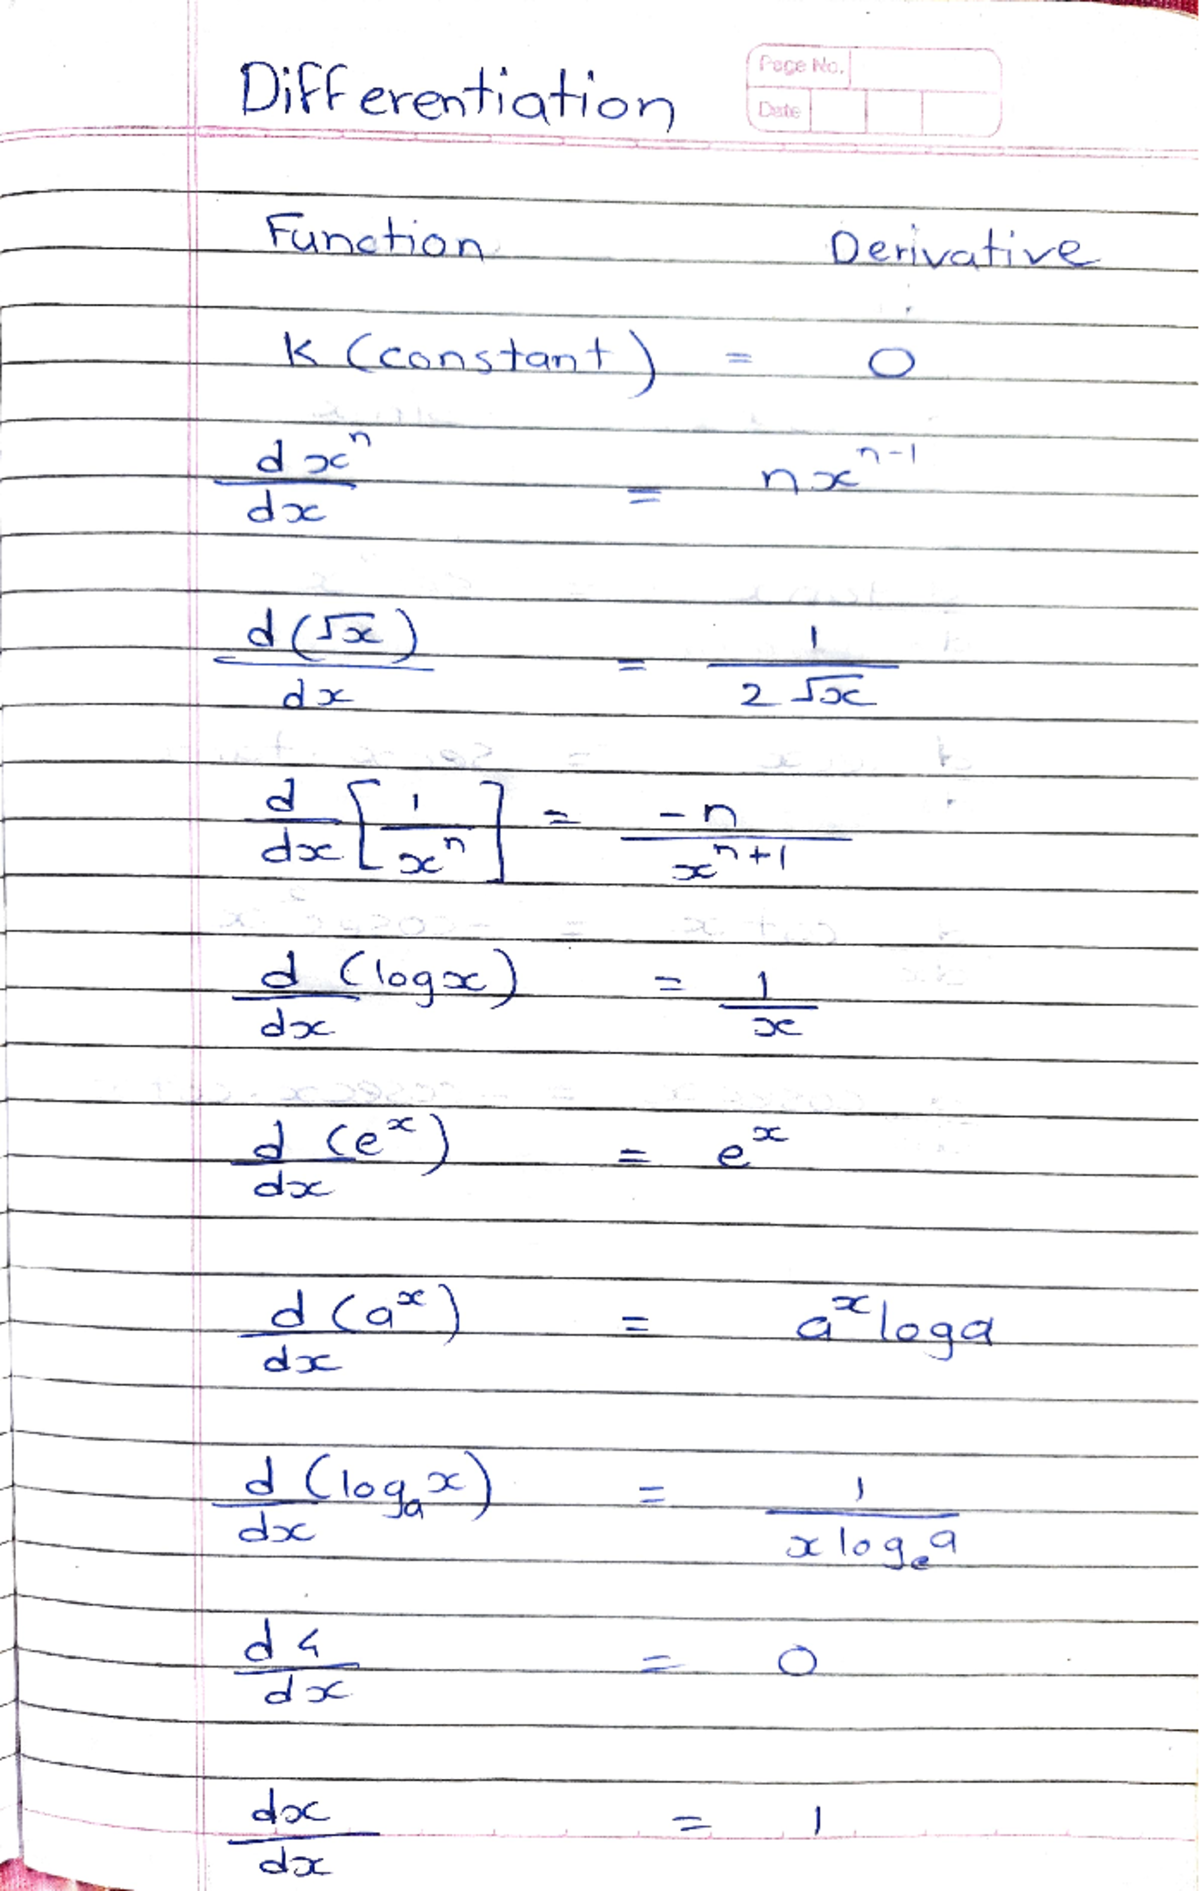 Differentiation
Page No.
Date
Function Derivative
K (constant) = 0
d xⁿ / dx = n xⁿ⁻¹
d (√x) / dx = 1 / 2 √x
d/dx [1/xⁿ] = -n / xⁿ⁺¹
d/dx (log x) = 1/x
d/dx (eˣ) = eˣ
d/dx (aˣ) = aˣ log a
d/dx (logₐ x) = 1 / x logₑ a
d 4 / dx = 0
dx / dx = 1